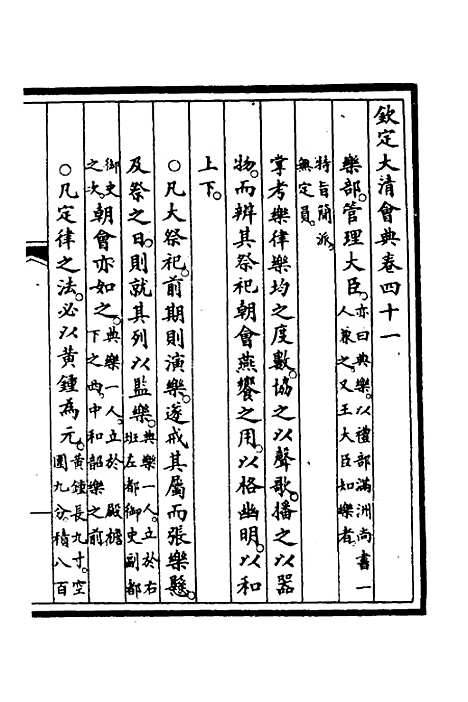 欽定大清會典卷四十一
樂部管理大臣亦曰典樂以禮部滿洲尚書一人兼之又王大臣知樂者
特旨簡派無定員
掌考樂律樂均之度數協之以聲歌播之以器
物而辨其祭祀朝會燕饗之用以格幽明以和
上下
○凡大祭祀前期則演樂遂戒其屬而張樂懸
及祭之日則就其列以監樂典樂一人立於右班左都御史副都
御史之次朝會亦如之典樂一人立於 殿檐下之西中和韶樂之前
○凡定律之法必以黃鍾為元黃鍾長九寸空圍九分積八百